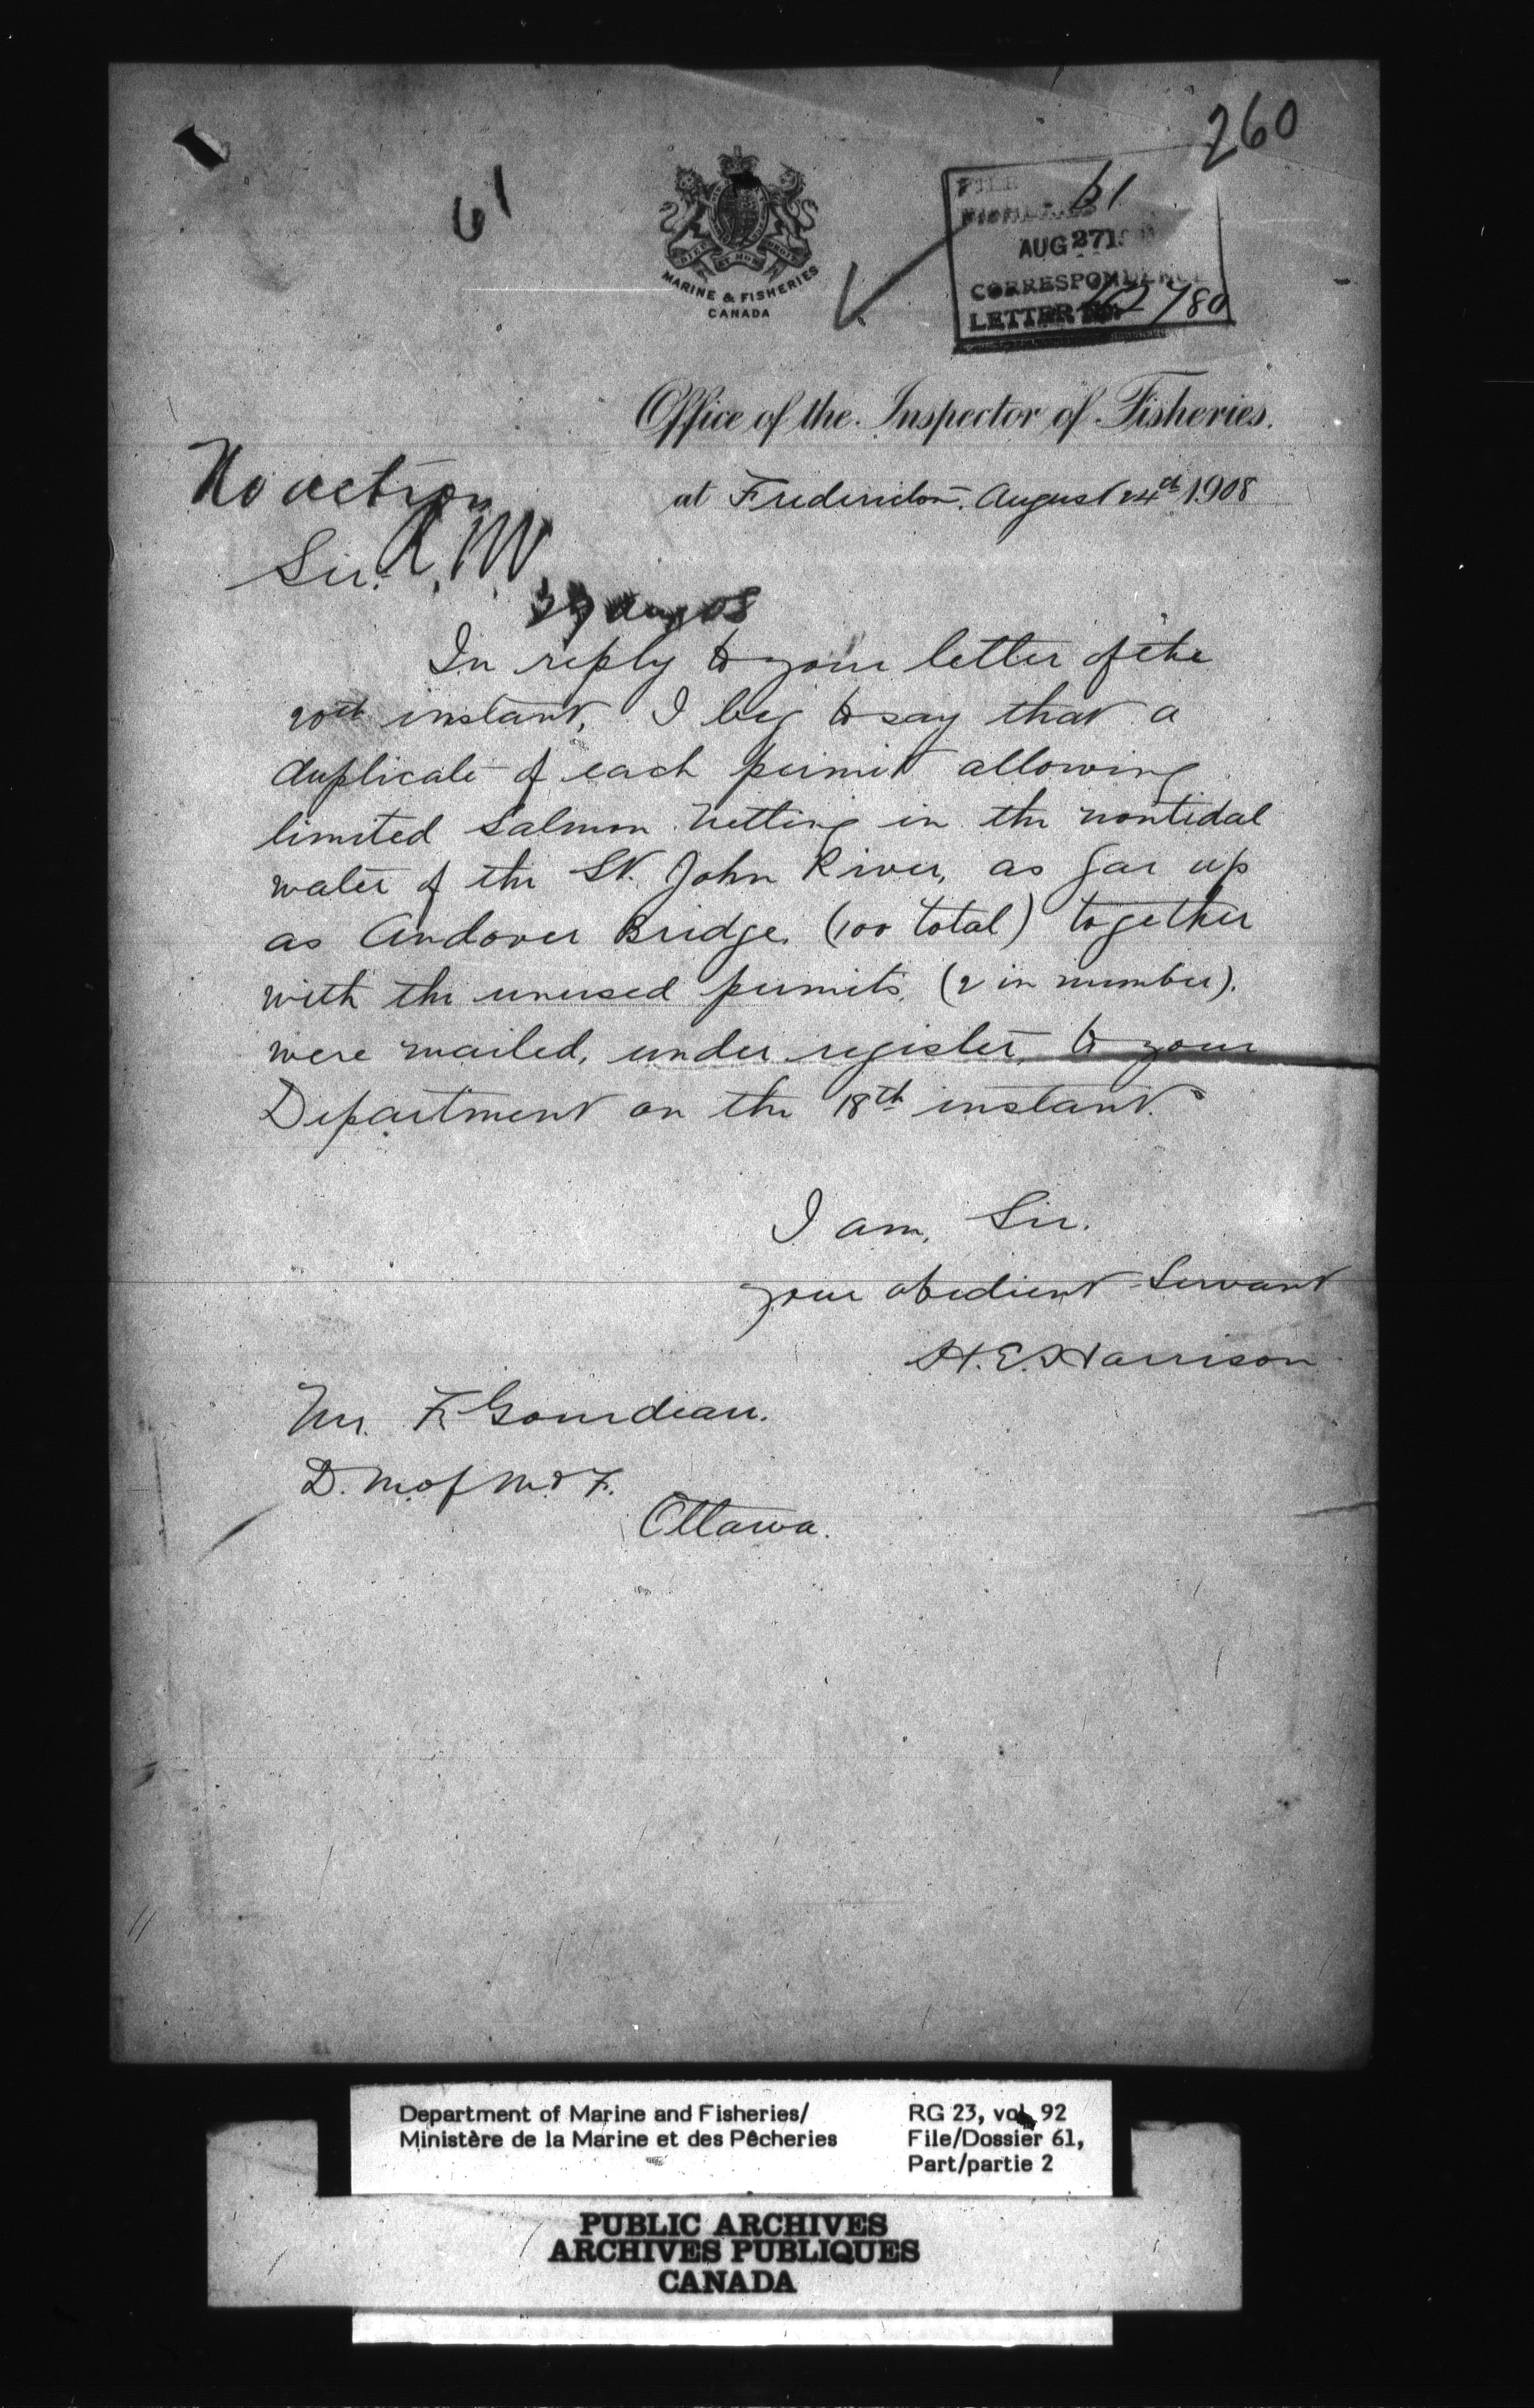 260
61
DIEU ET MON DROIT
MARINE & FISHERIES
CANADA
FILE 61
FISHERIES
AUG 27 19
CORRESPONDENCE
LETTER No. 780
Office of the Inspector of Fisheries.
at Fredericton, August 24th 1908
No action
Sir:
Aug 08
In reply to your letter of the
20th instant, I beg to say that a
duplicate of each permit allowing
limited Salmon Netting in the nontidal
water of the St. John River, as far up
as Andover Bridge, (100 total) together
with the unused permits, (2 in number).
were mailed, under register, to your
Department on the 18th instant.
I am, Sir.
your obedient Servant
H.E. Harrison
Mr. F. Gourdeau.
D. M. of M. & F.
Ottawa.
Department of Marine and Fisheries/
Ministère de la Marine et des Pêcheries
RG 23, vol. 92
File/Dossier 61,
Part/partie 2
PUBLIC ARCHIVES
ARCHIVES PUBLIQUES
CANADA